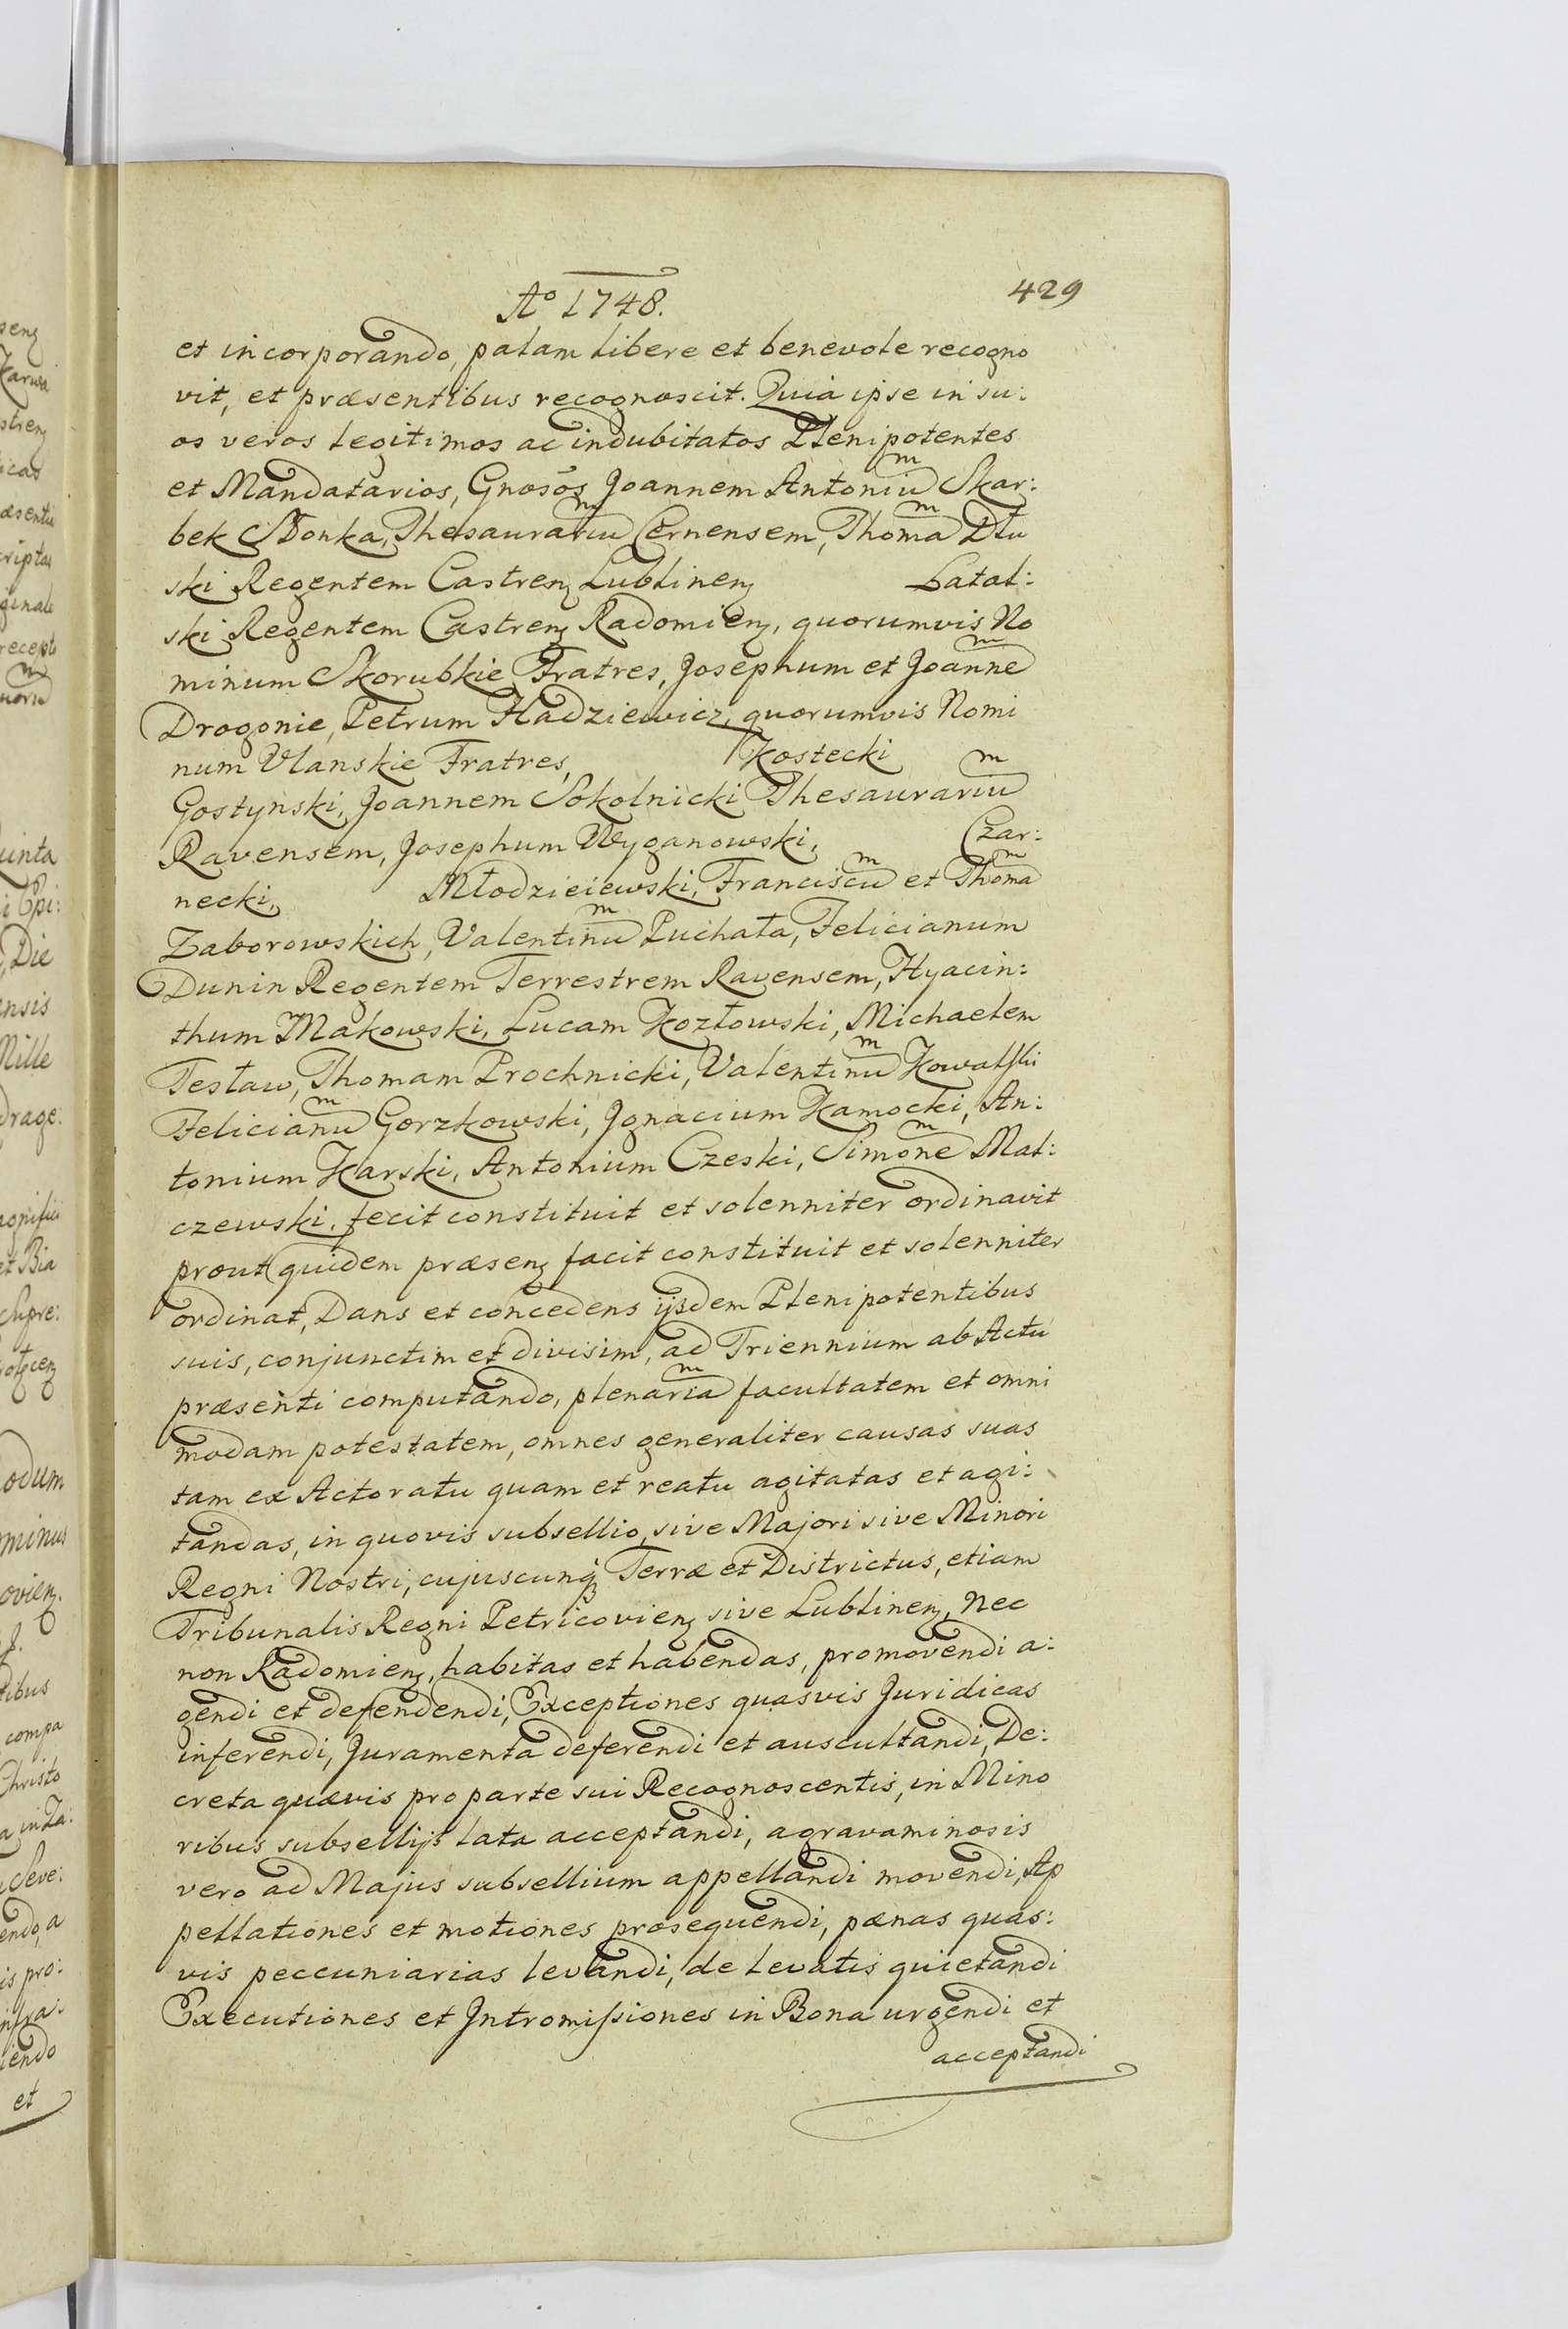 Aº 1748.
429
et incorporando, palam libere et benevole recogno
vit, et præsentibus recognoscit. Quia ipse in su:
os veros legitimos ac indubitatos Plenipotentes
et Mandatarios, Gnosōs Joannem Antoniuᵐ Skar:
bek Słonka, Thesaurariuᵐ Cernensem, Thomaᵐ Dłu
ski Regentem Castrenȝ Lublinenȝ Latal:
ski Regentem Castrenȝ Radomienȝ, quorumvis No
minum Skorubkie Fratres, Josephum et Joanneᵐ
Drogonie, Petrum Hadziewicz, quorumvis Nomi
num Vlanskie Fratres, Kostecki
Gostynski, Joannem Sokolnicki Thesaurariuᵐ
Ravensem, Josephum Wyganowski, Czar:
necki, Młodzieiewski, Franciscuᵐ et Thomaᵐ
Zaborowskich, Valentinuᵐ Puchała, Felicianum
Dunin Regentem Terrestrem Ravensem, Hyacin:
thum Makowski, Lucam Kozłowski, Michaelem
Tesław, Thomam Prochnicki, Valentinuᵐ Kowalski
Felicianuᵐ Gorzkowski, Jgnacium Kamocki, An:
tonium Karski, Antonium Czeski, Simoneᵐ Mal:
czewski, fecit constituit et solenniter ordinavit
prout quidem præsenȝ facit constituit et solenniter
ordinat, Dans et concedens ijsdem Plenipotentibus
suis, conjunctim et divisim, ad Triennium ab Actu
præsenti computando, plenariaᵐ facultatem et omni
modam potestatem, omnes generaliter causas suas
tam ex Actoratu quam et reatu agitatas et agi:
tandas, in quovis subsellio, sive Majori sive Minori
Regni Nostri, cujuscunqꝫ Terræ et Districtus, etiam
Tribunalis Regni Petricovienȝ sive Lublinenȝ, nec
non Radomienȝ, habitas et habendas, promovendi a:
gendi et defendendi, Exceptiones quasvis Juridicas
inferendi, Juramenta deferendi et auscultandi, De:
creta quævis pro parte sui Recognoscentis, in Mino
ribus subsellijs lata acceptandi, agravaminosis
vero ad Majus subsellium appellandi movendi, Ap
pellationes et motiones prosequendi, pænas quas:
vis peccuniarias levandi, de levatis quietandi
Executiones et Jntromißiones in Bona urgendi et
acceptandi